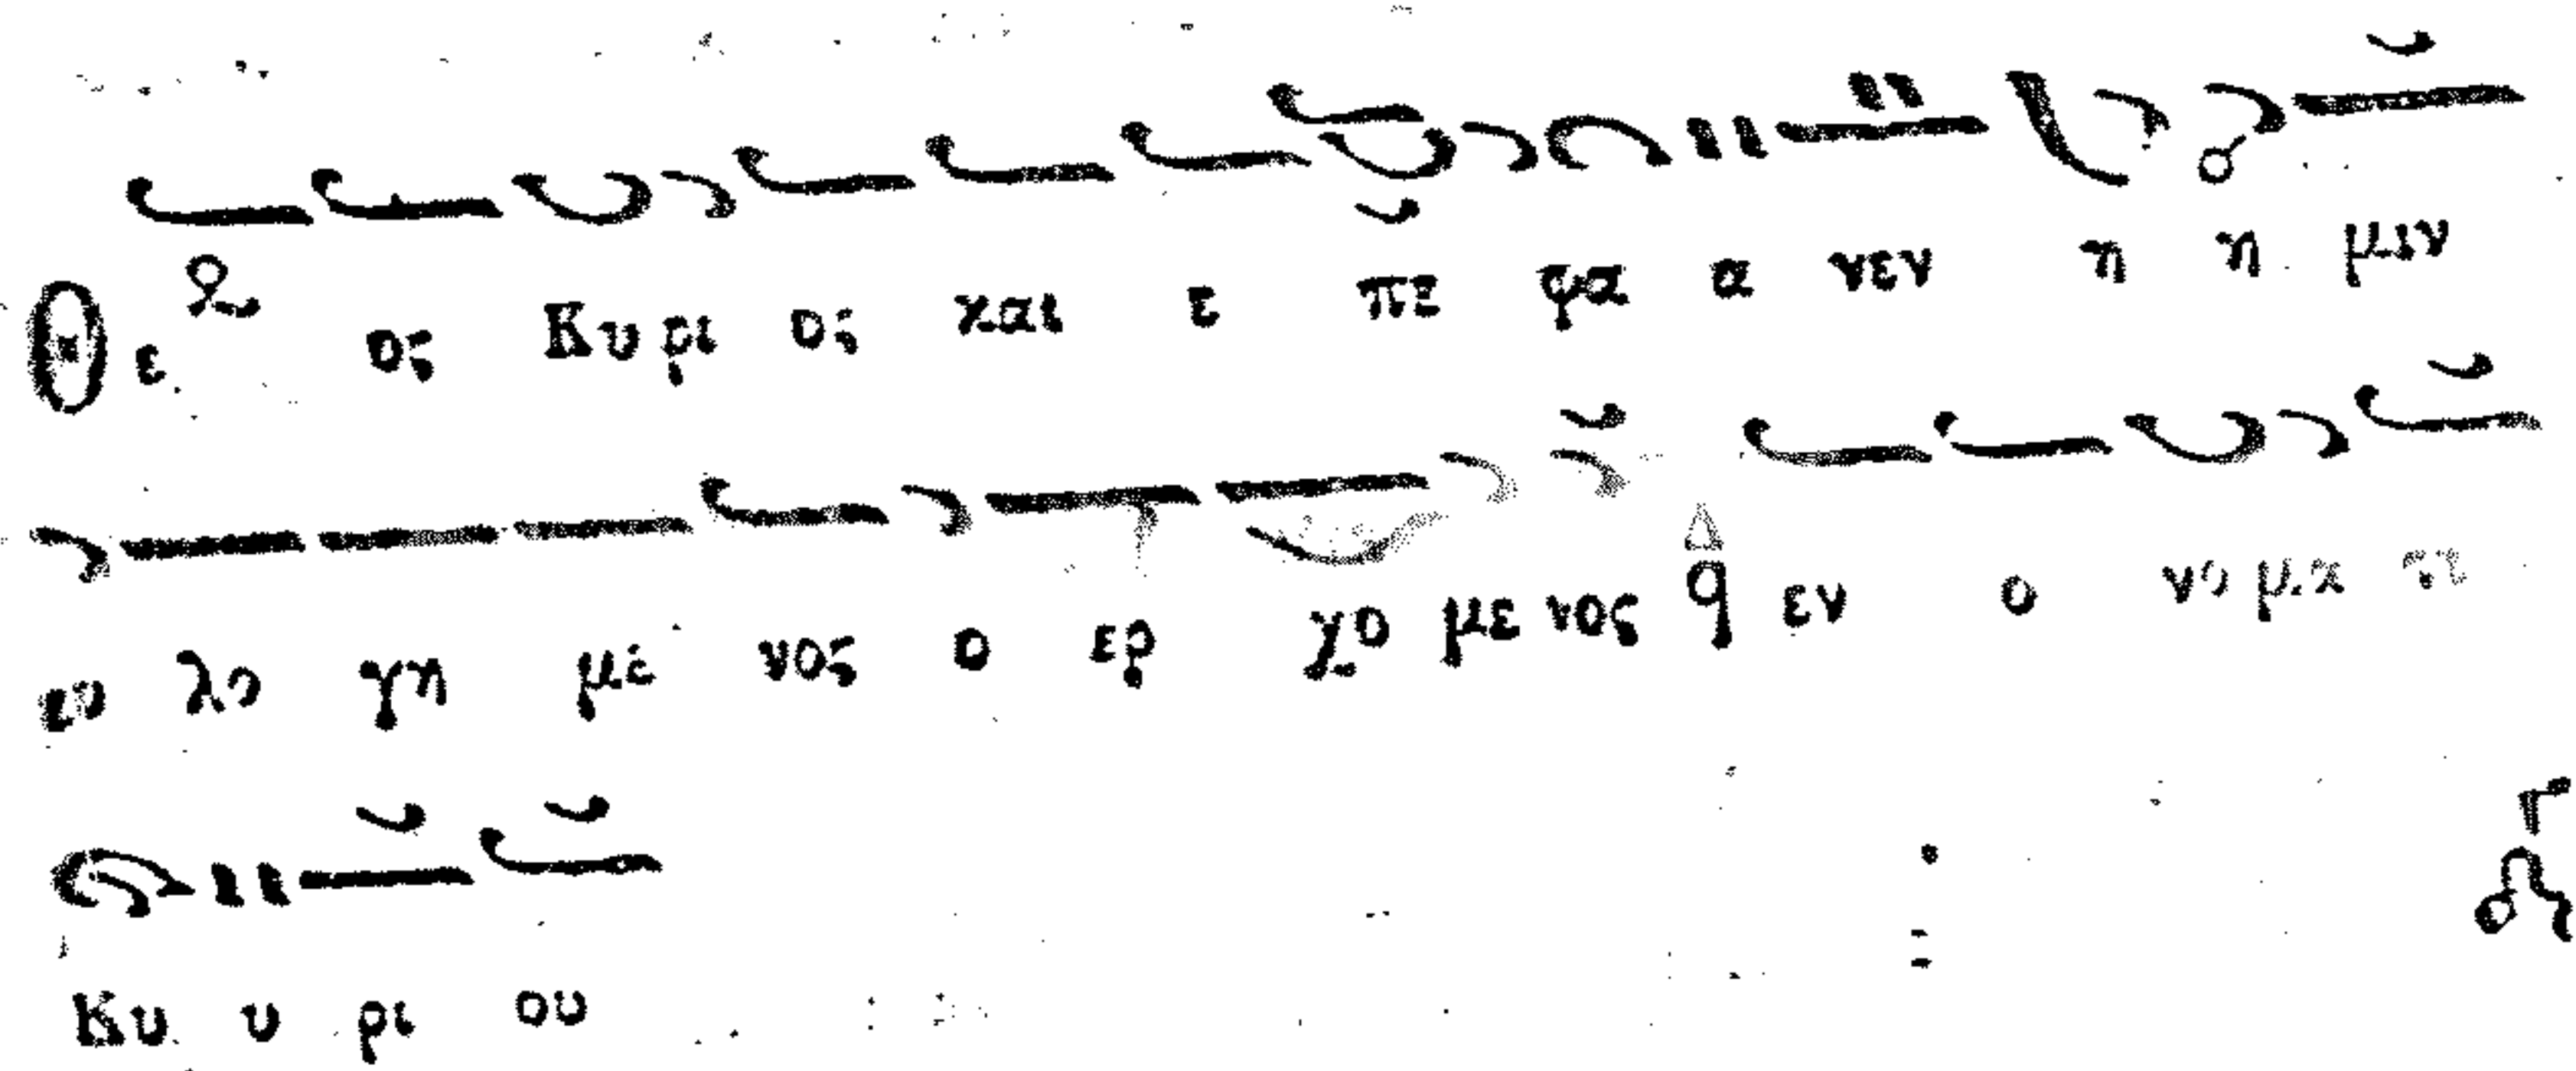 Θε ος Κυ ρι ος και ε πε φα α νεν η η μιν
ευ λο γη μέ νος ο ερ χο με νος q εν ο νο μα τι
Κυ υ ρι ου